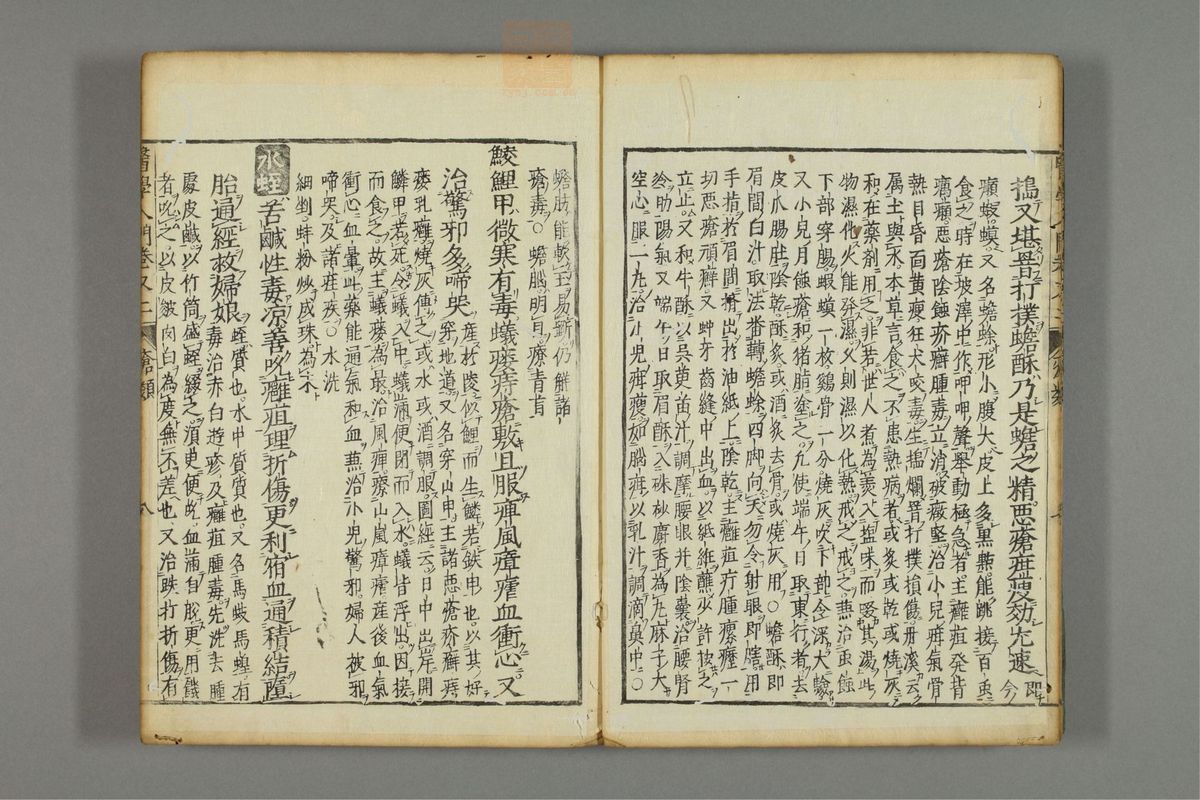 搗又堪荅打撲蟾酥乃是蟾之精惡瘡疳瘦効尤速即今
癩蝦蟇又名蟾蜍形小腹大皮上多黒㸃能跳接百虫
食之時在坡澤中作呷呷聲舉動極急者主癰疽発背
癘癩惡瘡陰蝕疥癬腫毒立消破癥堅治小兒疳氣骨
熱目昏面黄瘦狂犬咬毒生搗爛荅打撲損傷丹溪云
属土與水本草言食之不患熱病者或炙或乾或燒灰
和在藥剤用之非若世人煮為羮入塩味而啜其湯此
物濕化火能発濕久則濕以化熱戒之戒之兼治虫蝕
下部穿腸蝦蟇一枚鷄骨一分燒灰吹下部令深大驗
又小兒月蝕瘡和猪脂塗之凡使端午日取東行者去
皮爪腸肚陰乾酥炙或酒炙去骨或燒灰用〇蟾酥即
眉間白汁取法番轉蟾蜍四脚向天勿令射眼即瞎用
手揹於眉間擠出於油紙上陰乾主癰疽疔腫瘰癧一
切惡瘡頑癬又蚛牙齒縫中出血以紙紝蘸少許按之
立止又和牛酥以呉茰苗汁調摩腰眼并陰囊治腰腎
冷助陽氣又端午日取眉酥入硃砂麝香為丸麻子大
空心服一丸治小児疳瘦如腦疳以乳汁調滴鼻中〇
蟾肪能軟玉易斲仍解諸
瘡毒〇蟾腦明目療青盲
鯪鯉甲微寒有毒蟻瘻痔瘡敷且服痺風瘴瘧血衝心又
治驚邪多啼哭産於陵似鯉而生鱗若鉄甲也以其好
穿地道又名穿山甲主諸惡瘡疥癬痔
瘻乳癰燒灰傅之或水或酒調服圖經云日中出岸開
鱗甲若死令蟻入中蟻滿便閉而入水蟻皆浮出因接
而食之故主蟻瘻為最治風痺療山嵐瘴瘧産後血氣
衝心血暈此藥能通氣和血兼治小兒驚邪婦人被邪
啼哭及諸疰疾〇水洗
細剉蚌粉炒成珠為末
水蛭苦鹹性毒凉善吮癰疽理折傷更利宿血通積結墮
胎通經救婦娘蛭質也水中質質也又名馬蟥馬蟥有
毒治赤白遊疹及癰疽腫毒先洗去腫
處皮鹹以竹筒盛蛭綴之湏更便咬血滿自脫更用饑
者吮之以皮皺肉白為度無不差也又治跌打折傷有
醫學入門卷又二 瘡類 八